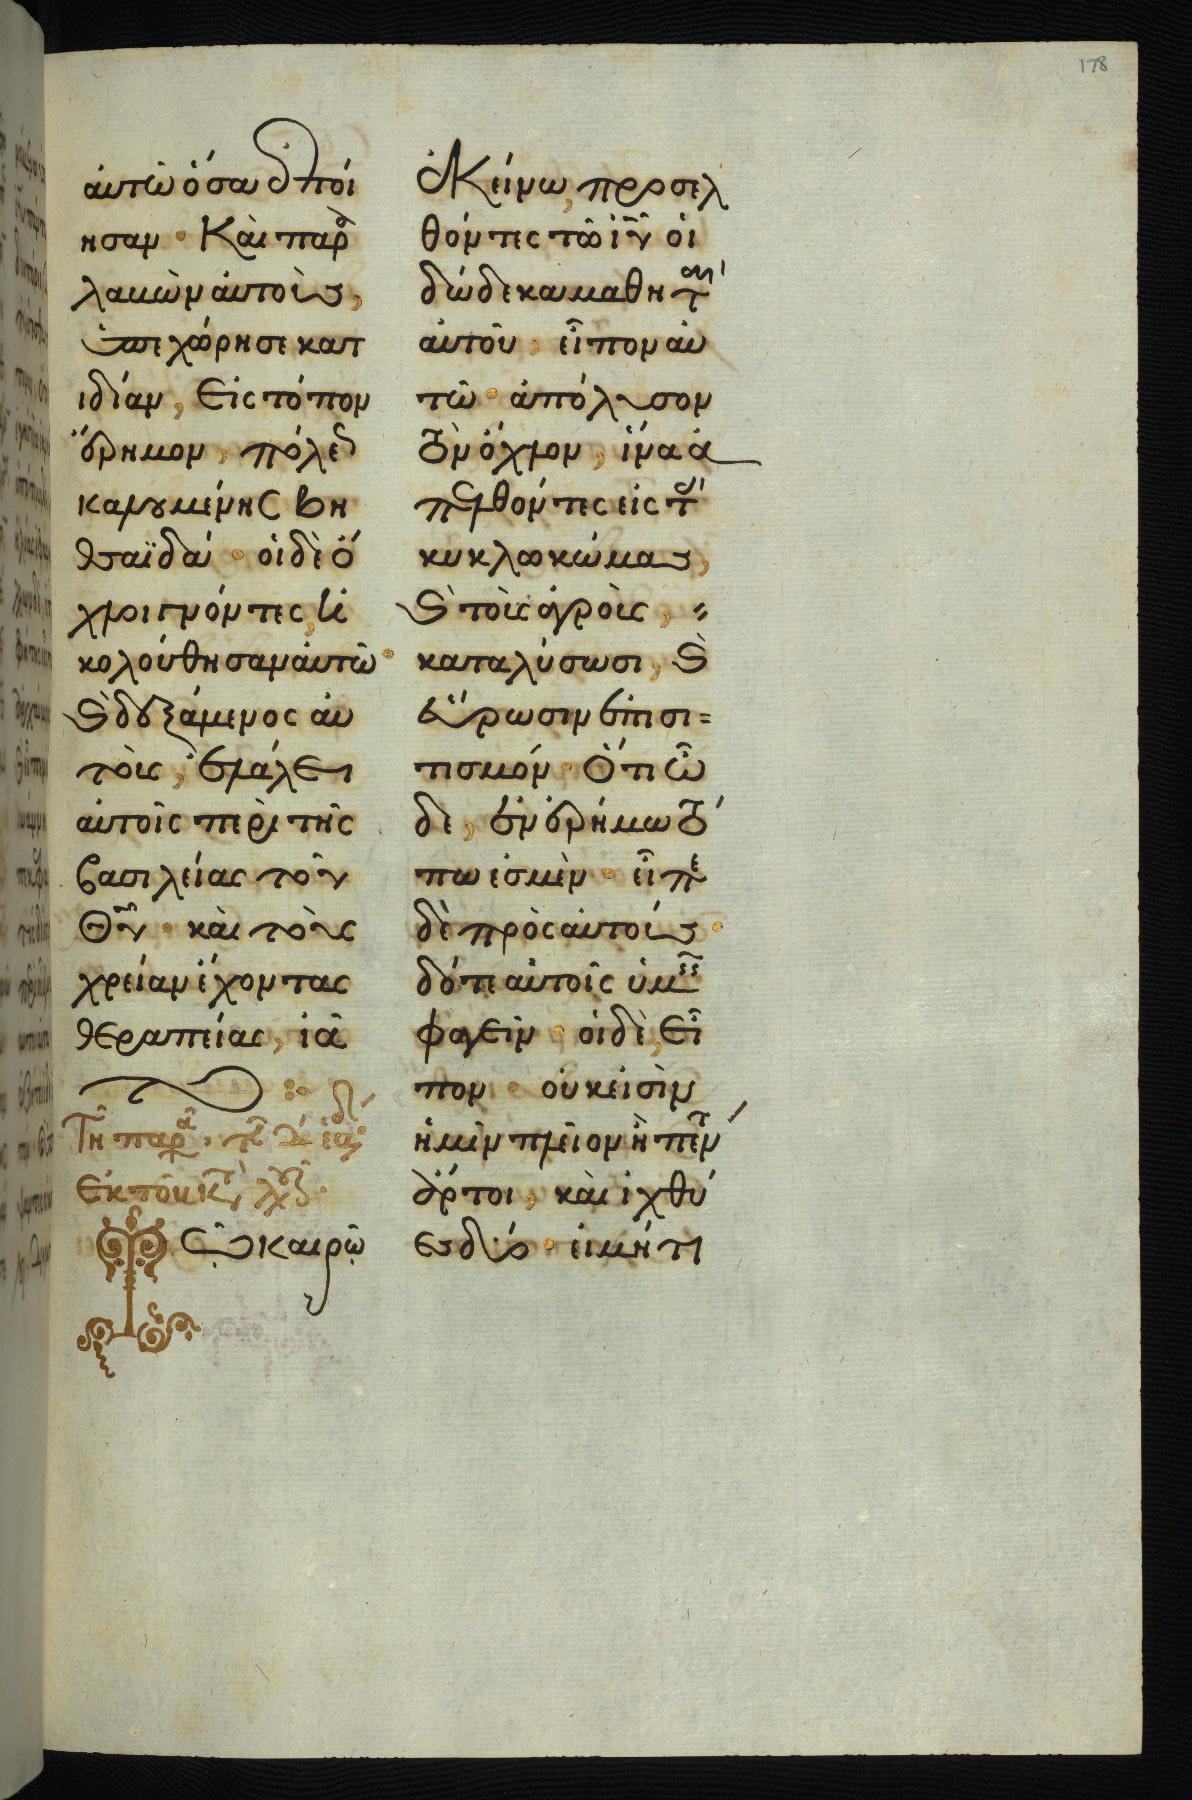 178
αὐτῶ ὅσα ἐποί
ησαν · Καὶ παρα
λαβὼν αὐτοὺς,
ὑπεχώρησε κατ
ιδίαν, Εἰς τόπον
ἔρημον, πόλεως
καλουμένης Βη
θσαϊδά · οἱ δὲ ὄ
χλοι γνόντες, ἠ
κολούθησαν αὐτῶ ·
καὶ δεξάμενος αὐ
τοὺς, ἐλάλει
αὐτοῖς περὶ τῆς
βασιλείας τοῦ
Θῦ · καὶ τοὺς
χρείαν ἔχοντας
θεραπείας, ἰᾶ
το :
Τῆ παρα
Εκ τοῦ κατ
Τῶ καιρῶ
ἐκείνω, προσελ
θόντες τῶ ἰῦ οἱ
δώδεκα μαθηταὶ
αὐτοῦ, εἶπον αὐ
τῶ · ἀπόλυσον
τὸν ὄχλον, ἵνα ἀ
πελθόντες εἰς τὰς
κύκλω κώμας,
καὶ τοὺς ἀγροὺς,
καταλύσωσι, καὶ
εὕρωσιν ἐπισι=
τισμόν · Ὅτι ὧ
δε, ἐν ἐρήμω τό
πω ἐσμὲν · εἶπε
δὲ πρὸς αὐτούς ·
δότε αὐτοῖς ὑμεῖς
φαγεῖν · οἱ δὲ, εἶ
πον · οὐκ εἰσὶν
ἡμῖν πλεῖον ἢ πέντε
ἄρτοι, καὶ ἰχθύ
ες δύο · εἰ μήτι